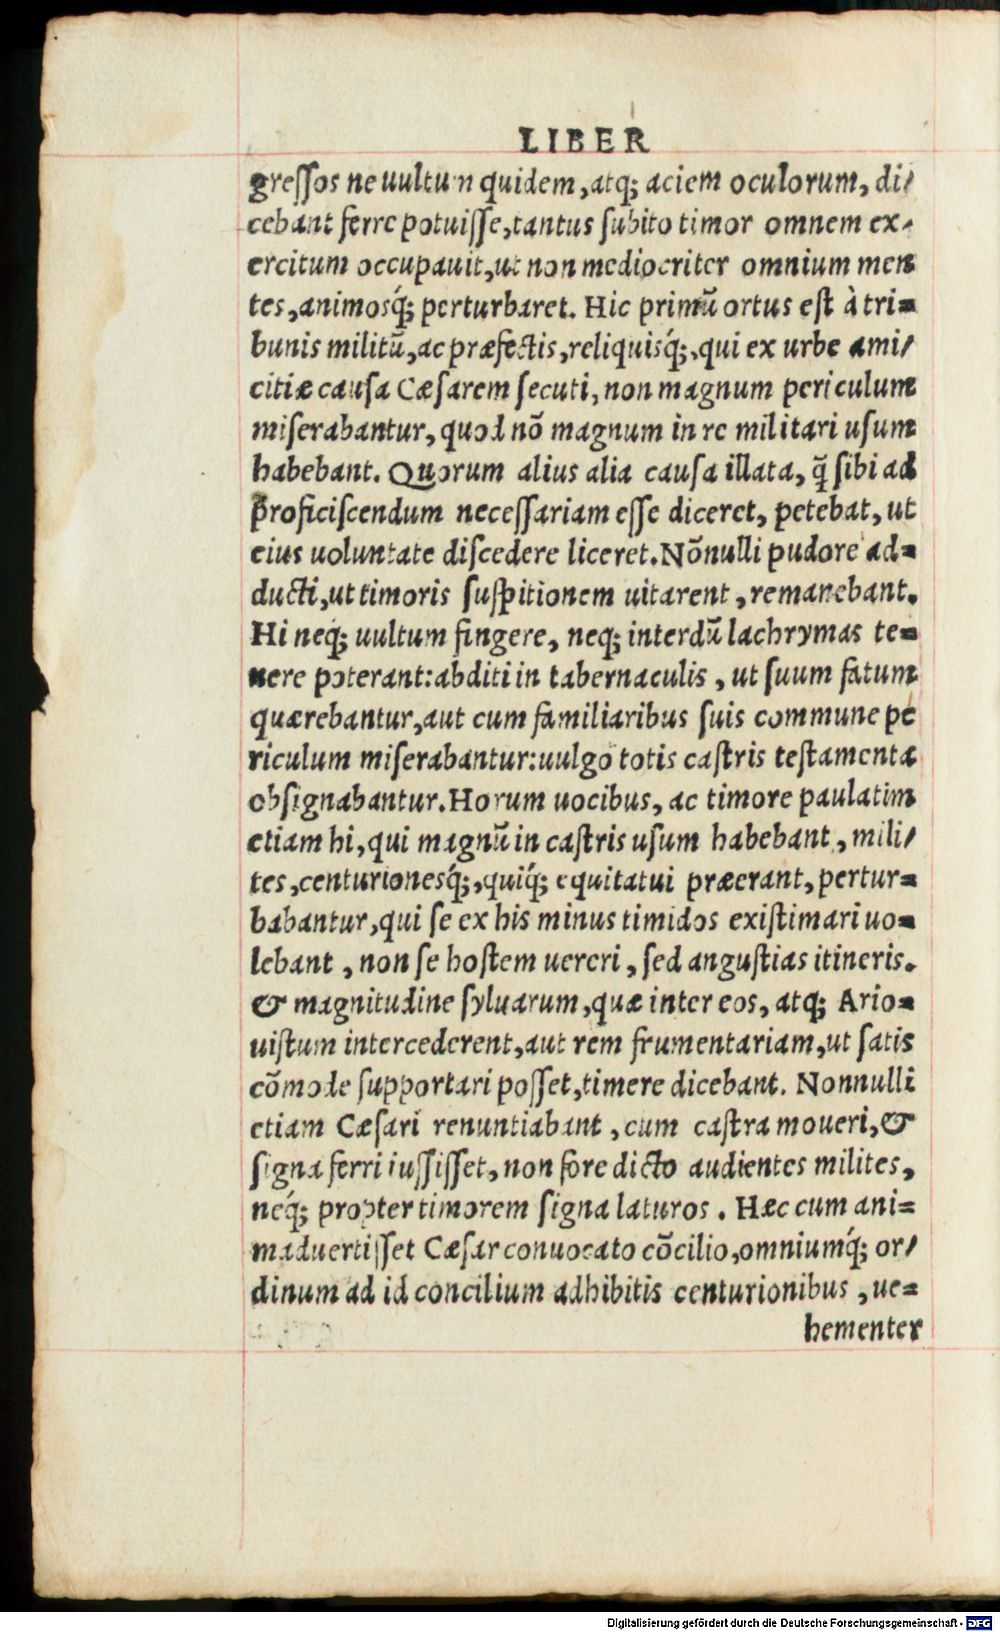 LIBER
gressos ne uultum quidem, atq; aciem oculorum, di/
cebant ferre potuisse, tantus subito timor omnem ex-
ercitum occupauit, ut non mediocriter omnium men
tes, animosq́; perturbaret. Hic primũ ortus est à tri=
bunis militũ, ac præfectis, reliquisq́;, qui ex urbe ami/
citiæ causa Cæsarem secuti, non magnum periculum
miserabantur, quod nõ magnum in re militari usum
habebant. Quorum alius alia causa illata, q̃ sibi ad
proficiscendum necessariam esse diceret, petebat, ut
eius uoluntate discedere liceret. Nõnulli pudore ad=
ducti, ut timoris suspitionem uitarent, remanebant.
Hi neq; uultum fingere, neq; interdũ lachrymas te=
nere poterant: abditi in tabernaculis, ut suum fatum
quærebantur, aut cum familiaribus suis commune pe
riculum miserabantur: uulgo totis castris testamenta
obsignabantur. Horum uocibus, ac timore paulatim
etiam hi, qui magnũ in castris usum habebant, mili/
tes, centurionesq́;, quiq́; equitatui præerant, pertur=
babantur, qui se ex his minus timidos existimari uo=
lebant, non se hostem uereri, sed angustias itineris.
& magnitudine syluarum, quæ inter eos, atq; Ario=
uistum intercederent, aut rem frumentariam, ut satis
cõmode supportari posset, timere dicebant. Nonnulli
etiam Cæsari renuntiabant, cum castra moueri, &
signa ferri iussisset, non fore dicto audientes milites,
neq́; propter timorem signa laturos. Hæc cum ani=
maduertisset Cæsar conuocato cõcilio, omniumq́; or/
dinum ad id concilium adhibitis centurionibus, ue=
hementer
Digitalisierung gefördert durch die Deutsche Forschungsgemeinschaft - DFG